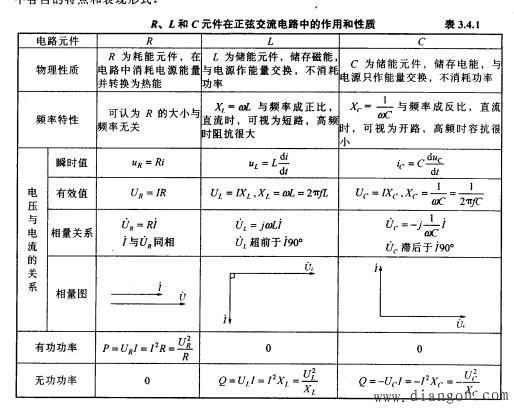 R、L 和 C 元件在正弦交流电路中的作用和性质 表 3.4.1
电路元件 R L C
物理性质
R 为耗能元件，在
电路中消耗电源能量
并转换为热能
L 为储能元件，储存磁能，
与电源作能量交换，不消耗
功率
C 为储能元件，储存电能，与
电源只作能量交换，不消耗功率
频率特性
可认为 R 的大小与
频率无关
X_L = ωL 与频率成正比，
直流时，可视为短路，高频
时阻抗很大
X_C = 1/ωC 与频率成反比，直流
时，可视为开路，高频时容抗很
小
电压与电流的关系
瞬时值 u_R = Ri u_L = L di/dt i_C = C du_C/dt
有效值 U_R = IR U_L = IX_L , X_L = ωL = 2πfL U_C = IX_C , X_C = 1/ωC = 1/2πfC
相量关系
U̇_R = Rİ
İ 与 U̇_R 同相
U̇_L = jωLİ
U̇_L 超前于 İ90°
U̇_C = -j 1/ωC İ
U̇_C 滞后于 İ90°
相量图
İ
U̇
U̇_L
İ
İ
U̇_C
有功功率 P = U_R I = I²R = U_R²/R 0 0
无功功率 0 Q = U_L I = I²X_L = U_L²/X_L Q = -U_C I = -I²X_C = -U_C²/X_C
www.diangon.com